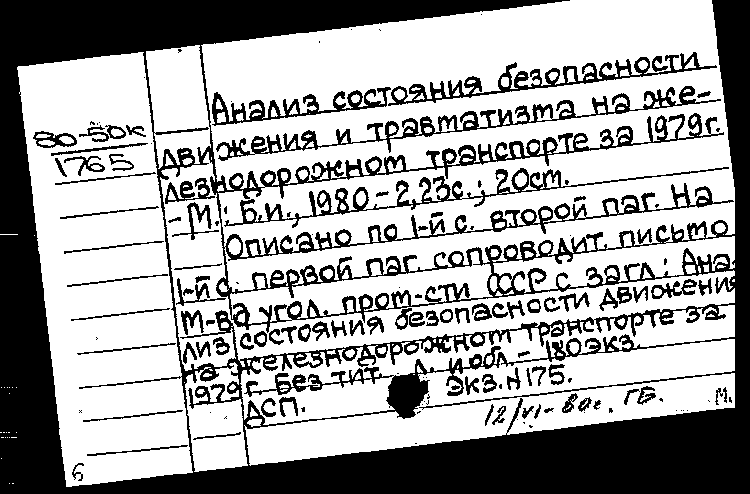 80-50к
1765
Анализ состояния безопасности
движения и травматизма на же-
лезнодорожном транспорте за 1979г.
- М.: Б.и., 1980.- 2,23с.; 20см.
Описано по 1-й с. второй паг. На
1-й с. первой паг. сопроводит. письмо
м-ва угол. пром-сти СССР с загл.: Ана-
лиз состояния безопасности движения
на железнодорожном транспорте за
1979 г. Без тит. л. и обл.- 180экз.
Экз.N175.
ДСП.
12/VI-80г. ГБ. М.
6